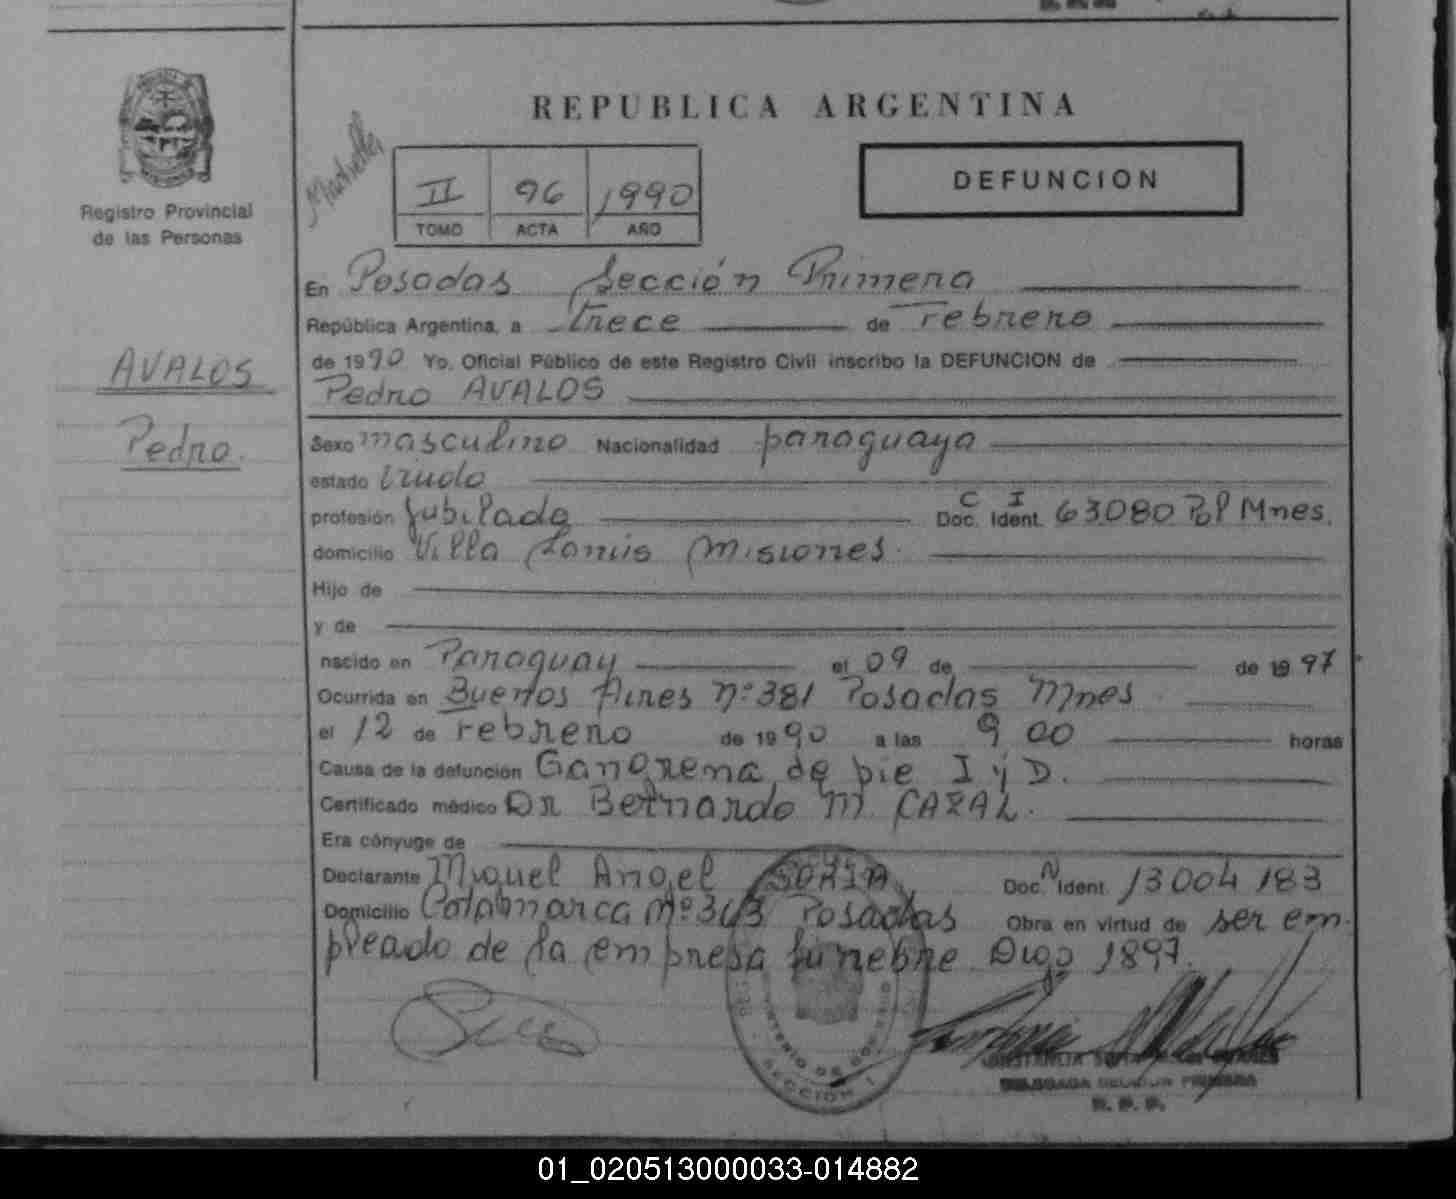 REPUBLICA ARGENTINA
Registro Provincial
de las Personas
II 96 1990
TOMO ACTA AÑO
DEFUNCION
AVALOS
Pedro.
En Posadas Sección Primera
República Argentina, a trece de Febrero
de 1990 Yo, Oficial Público de este Registro Civil inscribo la DEFUNCION de
Pedro AVALOS
Sexo masculino Nacionalidad paraguaya
estado Viudo
profesión Jubilado Doc. Ident. C I 63.080 Pol Mnes.
domicilio Villa Lanús Misiones.
Hijo de
y de
nacido en Paraguay el 09 de de 1897
Ocurrida en Buenos Aires Nº 381 Posadas Mnes
el 12 de Febrero de 1990 a las 9 00 horas
Causa de la defunción Gangrena de pie I y D.
Certificado médico Dr Bernardo M. CAZAL.
Era cónyuge de
Declarante Miguel Angel SORIA Doc. N Ident. 13 004 183
Domicilio Catamarca Nº 363 Posadas Obra en virtud de ser em-
pleado de la empresa fúnebre. Digo 1897.
SECCION 1
R. P. P.
01_020513000033-014882